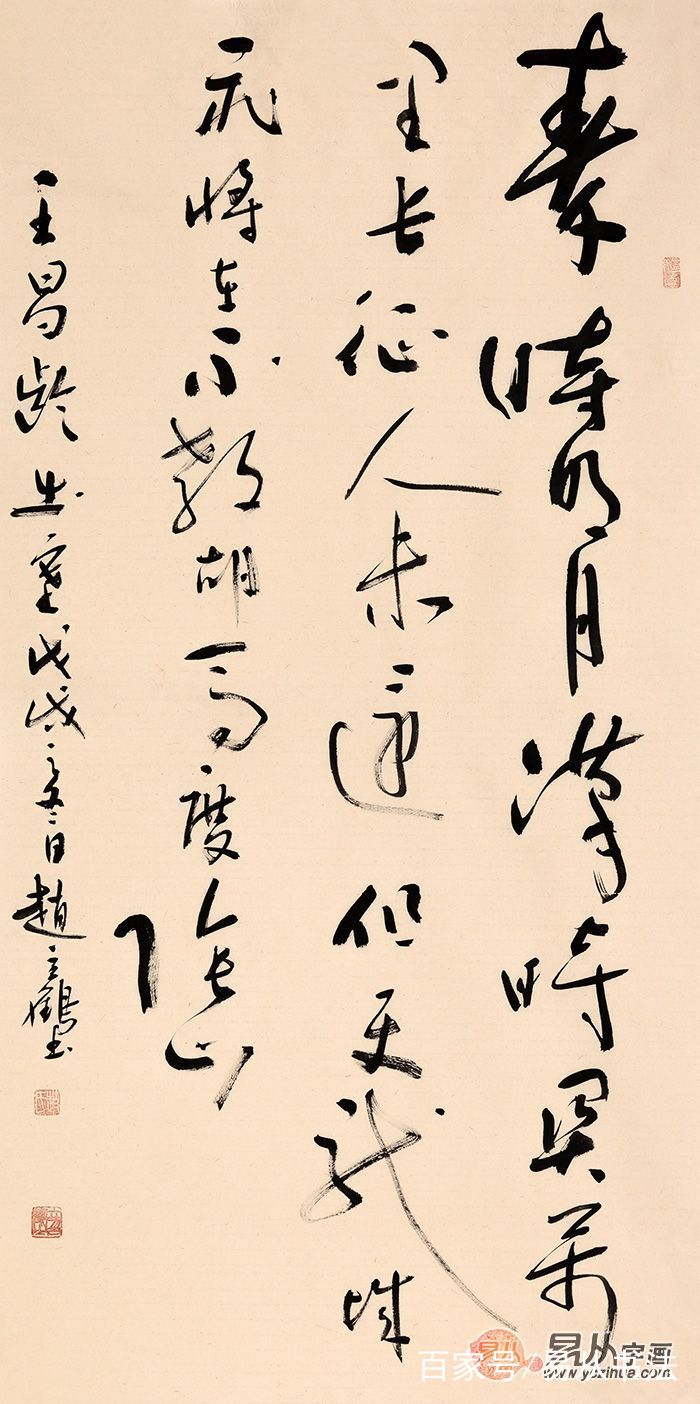 秦時明月漢時關萬
里長征人未還但使龍城
飛將在不教胡馬度陰山
王昌齡出塞戊戌之冬日趙立鶴書
易从字画
www.yczihua.com
百家号/易从书法